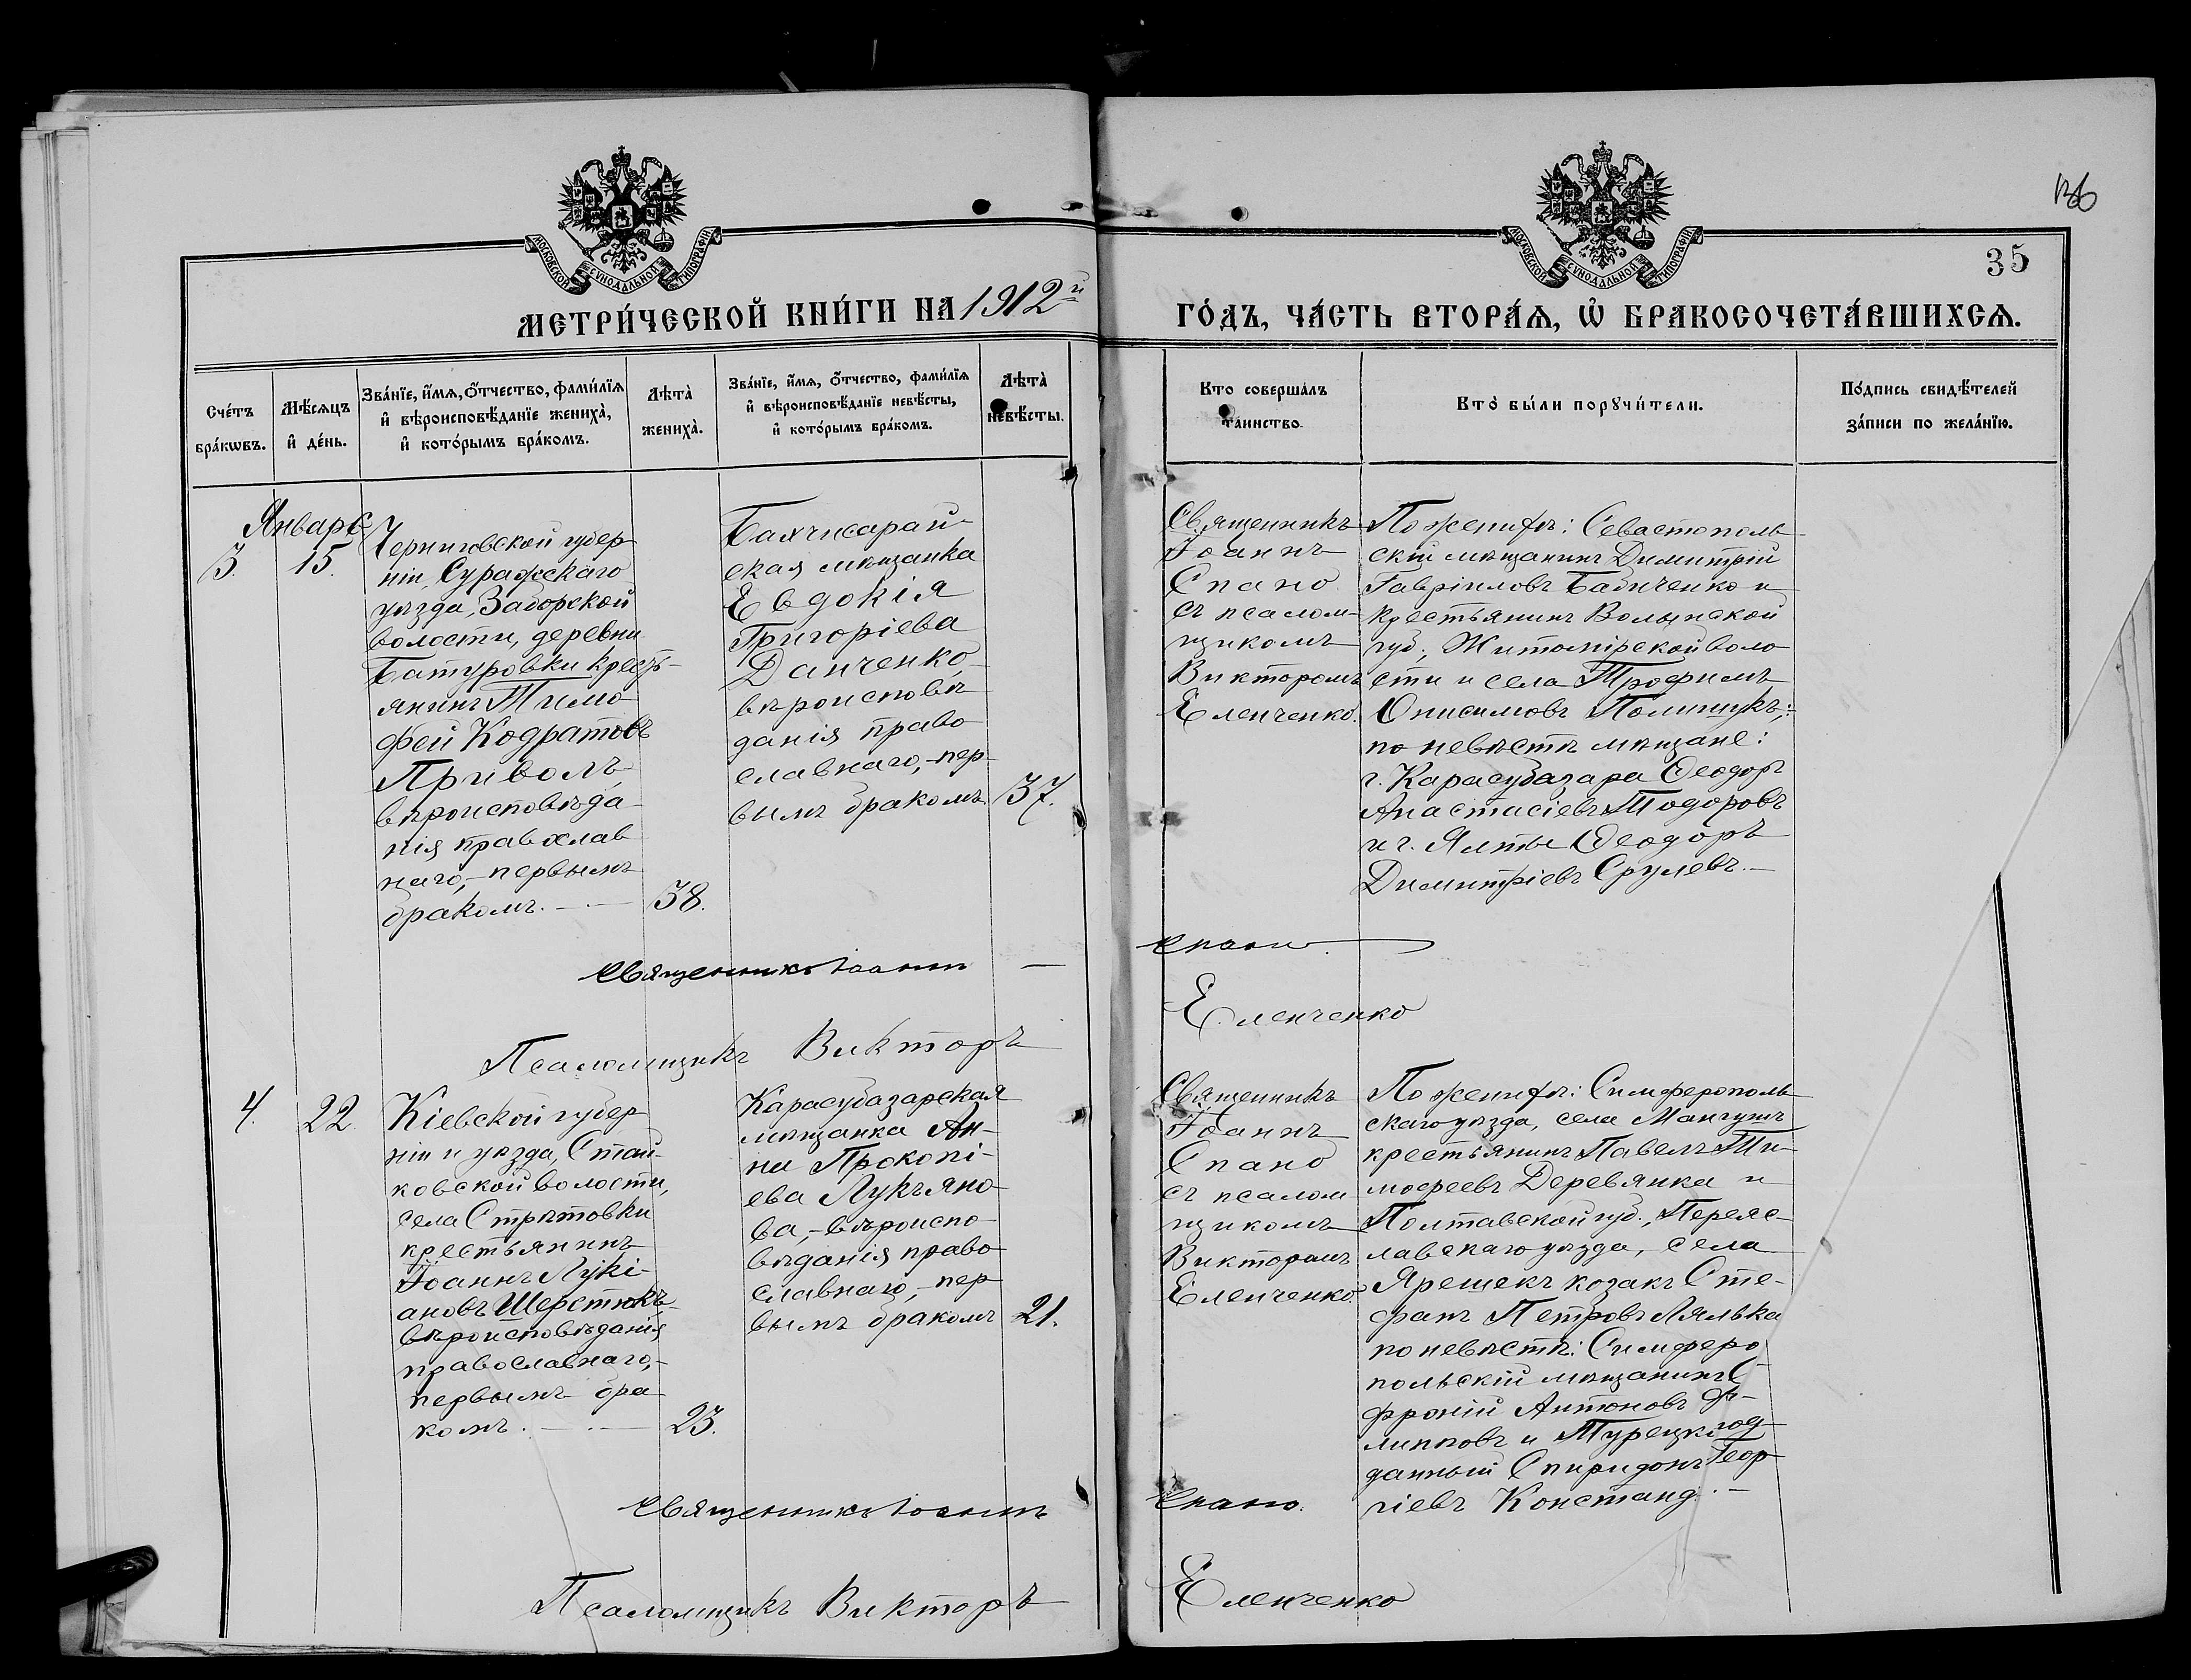 136
35
МОСКОВСКОЙ СѴНОДАЛЬНОЙ ТИПОГРАФІИ
МОСКОВСКОЙ СѴНОДАЛЬНОЙ ТИПОГРАФІИ
МЕТРИ́ЧЕСКОЙ КНИ́ГИ НА 1912й
ГО́ДЪ, ЧА́СТЬ ВТОРА́Ѧ, Ѡ҆ БРАКОСОЧЕТА́ВШИХСѦ.
Сче́тъ
бра́кѡвъ.
Мѣ́сѧцъ
и҆ де́нь.
Зва́нїе, и҆́мѧ, ѻ҆́тчество, фами́лїѧ
и҆ вѣроисповѣ́данїе жениха̀,
и҆ кото́рымъ бра́комъ.
Лѣта̀
жениха̀.
Зва́нїе, и҆́мѧ, ѻ҆́тчество, фами́лїѧ
и҆ вѣроисповѣ́данїе невѣ́сты,
и҆ кото́рымъ бра́комъ.
Лѣта̀
невѣ́сты.
Кто соверша́лъ
та́инство.
Кто̀ бы́ли порꙋчи́тели.
По́дпись свидѣ́телей
за́писи по жела́нїю.
Январь
3.
15.
Черниговской губер
ніи, Суражскаго
уѣзда, Заборской
волости, деревни
Батуровки кресть-
янинъ Тимо
фей Кодратовъ
Приволъ,
вѣроисповѣда-
нія православ
наго,- первымъ
бракомъ. — . —
38.
Бахчисарай-
ская мѣщанка
Евдокія
Григоріева
Данченко,
вѣроисповѣ
данія право
славнаго,- пер-
вымъ бракомъ.
37.
Священникъ
Іоаннъ
Спано
съ псалом-
щикомъ
Викторомъ
Еленченко.
По женихѣ: Севастополь-
скій мѣщанинъ Димитрій
Гавріиловъ Бабиченко и
крестьянинъ Волынской
губ., Житомірской воло
сти и села Трофимъ
Онисимовъ Полищукъ,:
по невѣстѣ мѣщане:
г. Карасубазара Ѳеодоръ
Анастасіевъ Тодоровъ
и г. Ялты Ѳеодоръ
Димитріевъ Срулевъ.—
Священникъ Іоаннъ —
Спано.
Псаломщикъ Викторъ
Еленченко
4.
22.
Кіевской губер
ніи и уѣзда, Стай-
ковской волости,
села Стрѣтовки
крестьянинъ
Іоаннъ Лукі-
ановъ Шерстюкъ,
вѣроисповѣданія
православнаго,-
первымъ бра
комъ. — . —
23.
Карасубазарская
мѣщанка Ан-
на Прокопі-
ева Лукьяно-
ва,- вѣроиспо-
вѣданія право
славнаго,- пер
вымъ бракомъ
21.
Священникъ
Іоаннъ
Спано
съ псалом
щикомъ
Викторомъ
Еленченко.
По женихѣ: Симферополь
скаго уѣзда, села Мангушъ
крестьянинъ Павелъ Ти-
мофеевъ Деревянка и
Полтавской губ., Переяс-
лавскаго уѣзда, села
Ярешекъ козакъ Сте-
фанъ Петровъ Лялька
по невѣстѣ: Симферо
польскій мѣщанинъ С
фроній Антоновъ Фи-
липповъ и Турецкопод
данный Спиридонъ Геор
гіевъ Констанд. —
Священникъ Іоаннъ
Спано.
Псаломщикъ Викторъ
Еленченко